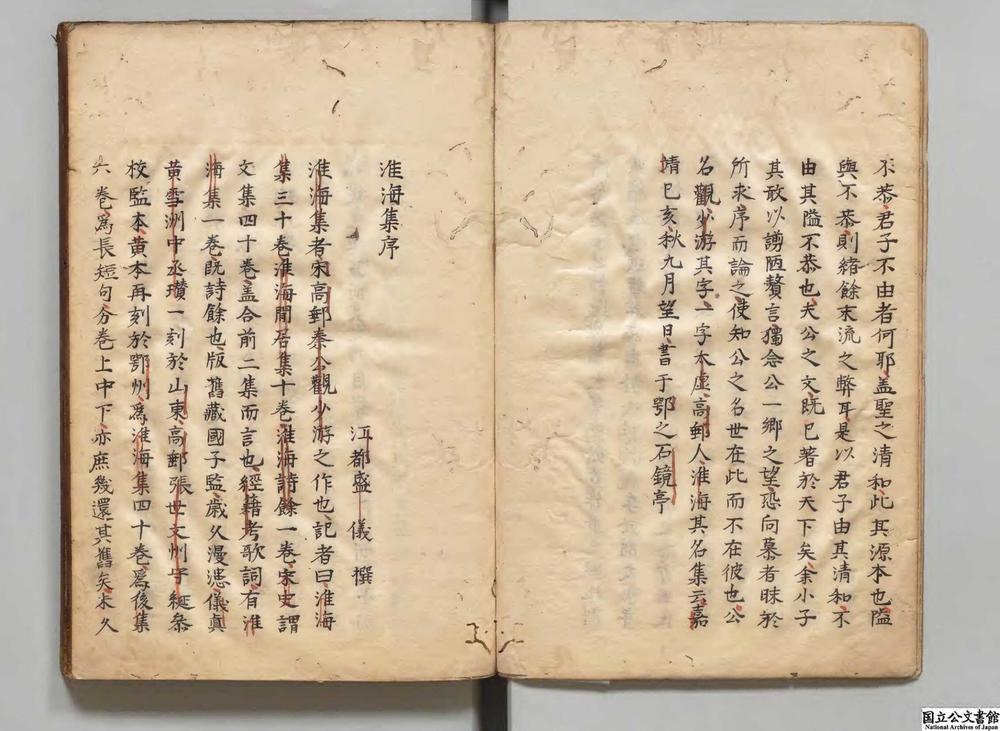 不恭君子不由者何耶盖聖之清和此其源本也隘
與不恭則緒餘末流之弊耳是以君子由其清和不
由其隘不恭也夫公之文既已著於天下矣余小子
其敢以謭陋贅言獨念公一鄉之望恐向慕者昧於
所求序而論之使知公之名世在此而不在彼也公
名觀少游其字一字太虛高郵人淮海其名集云嘉
靖己亥秋九月望日書于鄂之石鏡亭
淮海集序
江都盛儀撰
淮海集者宋高郵秦公觀少游之作也記者曰淮海
集三十卷淮海閒居集十卷淮海詩餘一卷宋史謂
文集四十卷盖合前二集而言也經籍考歌詞有淮
海集一卷既詩餘也版舊藏國子監歲久漫漶儀真
黄雪洲中丞瓚一刻於山東高郵張世文州守綖叅
校監本黄本再刻於鄂州為淮海集四十卷為後集
六卷為長短句分卷上中下亦庶幾還其舊矣未久
国立公文書館
National Archives of Japan